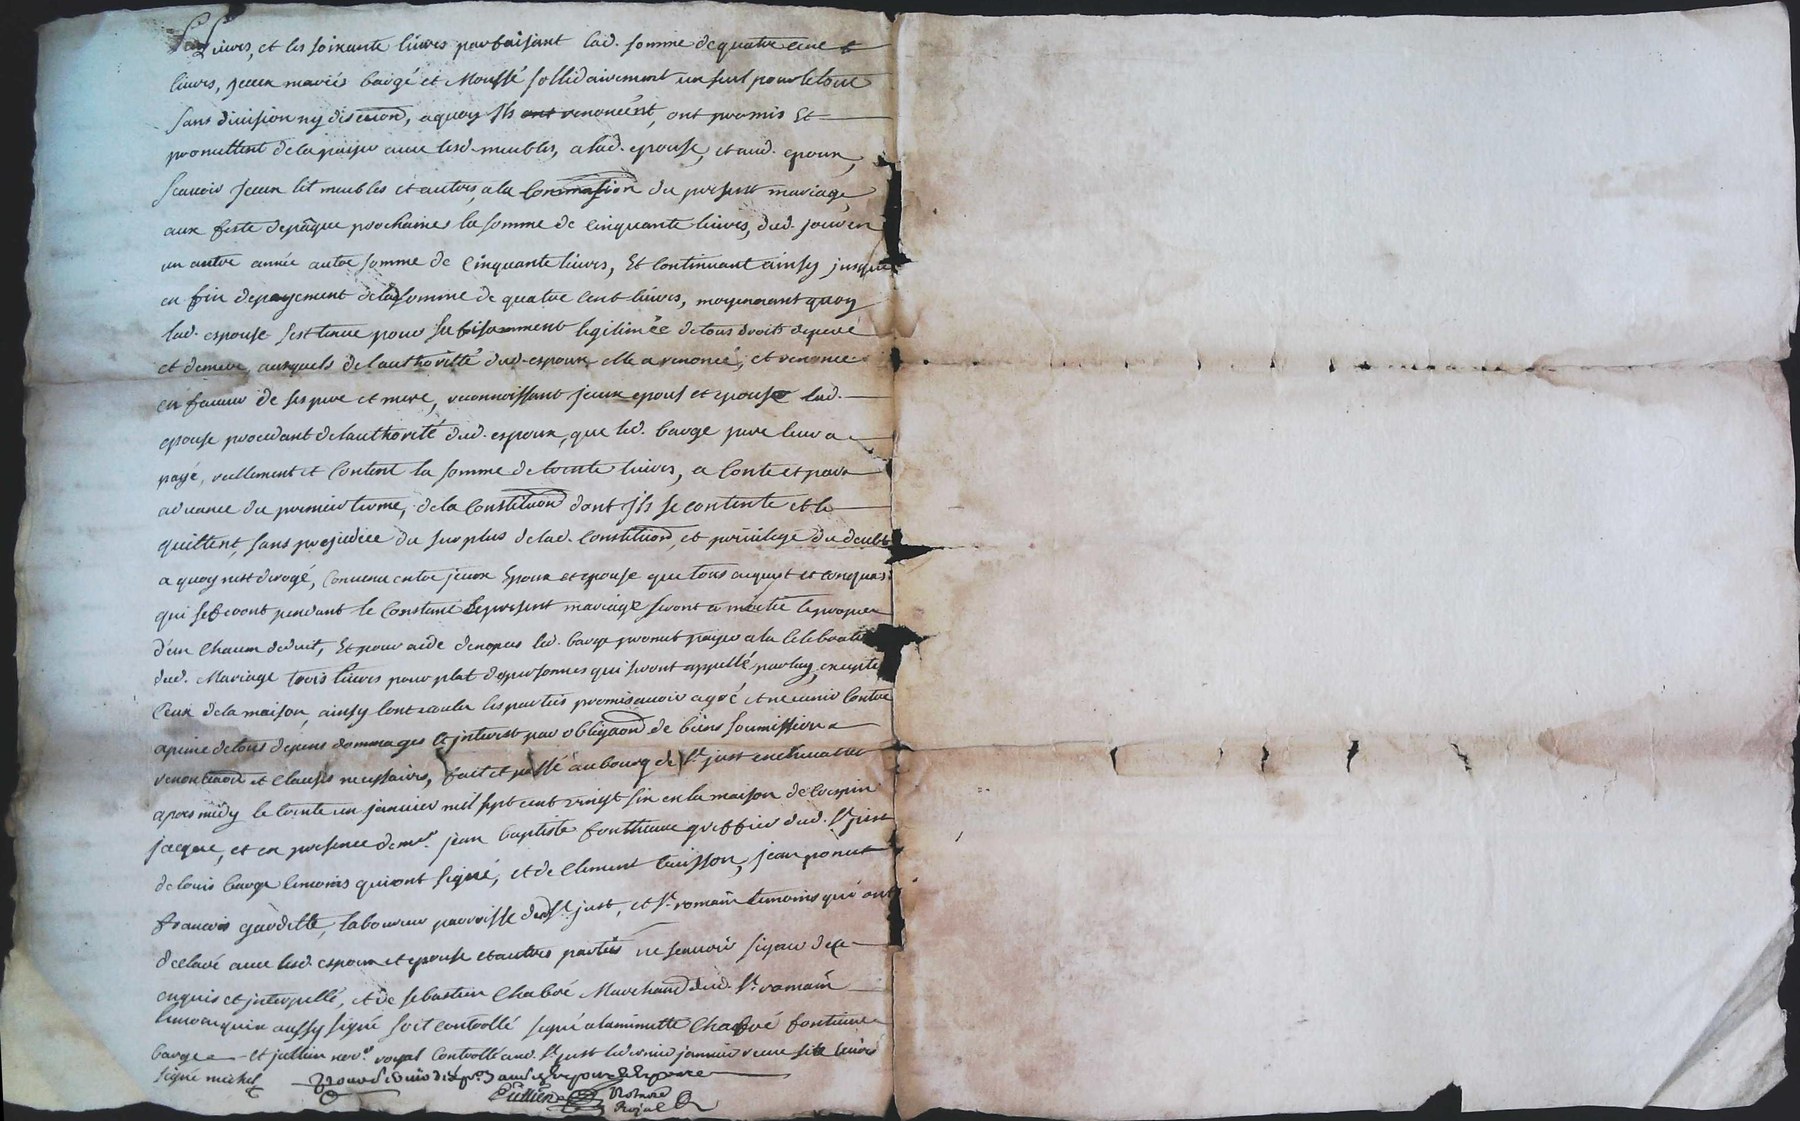 livres, et les soixante livres parfaisant lad. somme de quatre cent
livres, jceux mariés bargé et Moussé sollidairement un seul pour le tout
sans division ny discution, a quoy ils ont renoncént, ont promis Et
promettent de la paÿer avec lesd. meubles, a lad. epouse, et aud. epoux,
scavoir jceux lit meubles et autres, a la Consomation du present mariage,
aux feste de pâque prochaines la somme de cinquante livres, dud. jour en
un autre année autre somme de cinquante livres, Et continuant ainsy jusque
en fin de payement de lad. somme de quatre cent livres, moyennant quoy
lad. espouse s'est tenue pour sufisamment legitimée de tous droits de pere
et de mere, ausquels de l'authorité dud. espoux elle a renoncé, et renonce
en faveur de ses pere et mere, reconnoissant jceux epoux et epouse lad.
epouse procedant de l'authorité dud. espoux, que led. barge pere leur a
payé, reellement et Content la somme de trente livres, a Conte et par
advance du premier terme, de la Constitution dont jls se contente et le
quittent, sans prejudice du surplus de lad. Constitution, et privilege du deub
a quoy n'est derogé, Convenu entre jceux Epoux et epouse que tous acquest et conquas
qui se feront pendant le Constant du present mariage seront a moitié le propre
d'un Chacun deduit, Et pour aide de nopces led. barge promet payer a la Celebration
dud. Mariage trois livres pour plat de personnes qui seront appellé par luy, excepte
Ceux de la maison, ainsy l'ont voulu les parties promis avoir agré et ne venir Contre
a peine de tous depens dommages et interest par obligaon de biens soumission
renontiaon et Clauses necessaires, fait et passé au bourg de St. just en chevallet
apres midy le trente un janvier mil sept cent vingt six en la maison de crespin
jacque, et en presence de mr. jean baptiste fontheune greffier dud. St. just
de louis barge temoins qui ont signé, et de Clement buisson, jean ponent
francois gardette, laboureur parroisse dud. St. just, et St. romain temoins qui ont
declaré avec lesd. espoux et epouse et autres parties ne scavoir signer de ce
enquis et jnterpellé, et de sebastien Chabré Marchand dud. St. romain
aussy signé soit controllé signé a la minutte Chabré fontheune
barge et jullien nore. royal Controllé aud. St. just le dernier janvier receu six livres
signé michel
Jullien Notaire
Royal